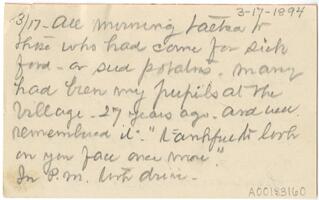 3-17-1894
3/17 - All morning talked to
those who had come for sick
food - or seed potatoes. Many
had been my pupils at the
Village - 27 years ago - and well
remembered it - "thankful to look
on your face once more."
In P.M. took drive -
A00183160